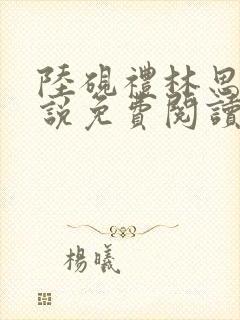 陸硯禮林思
說免費閱讀
楊曦